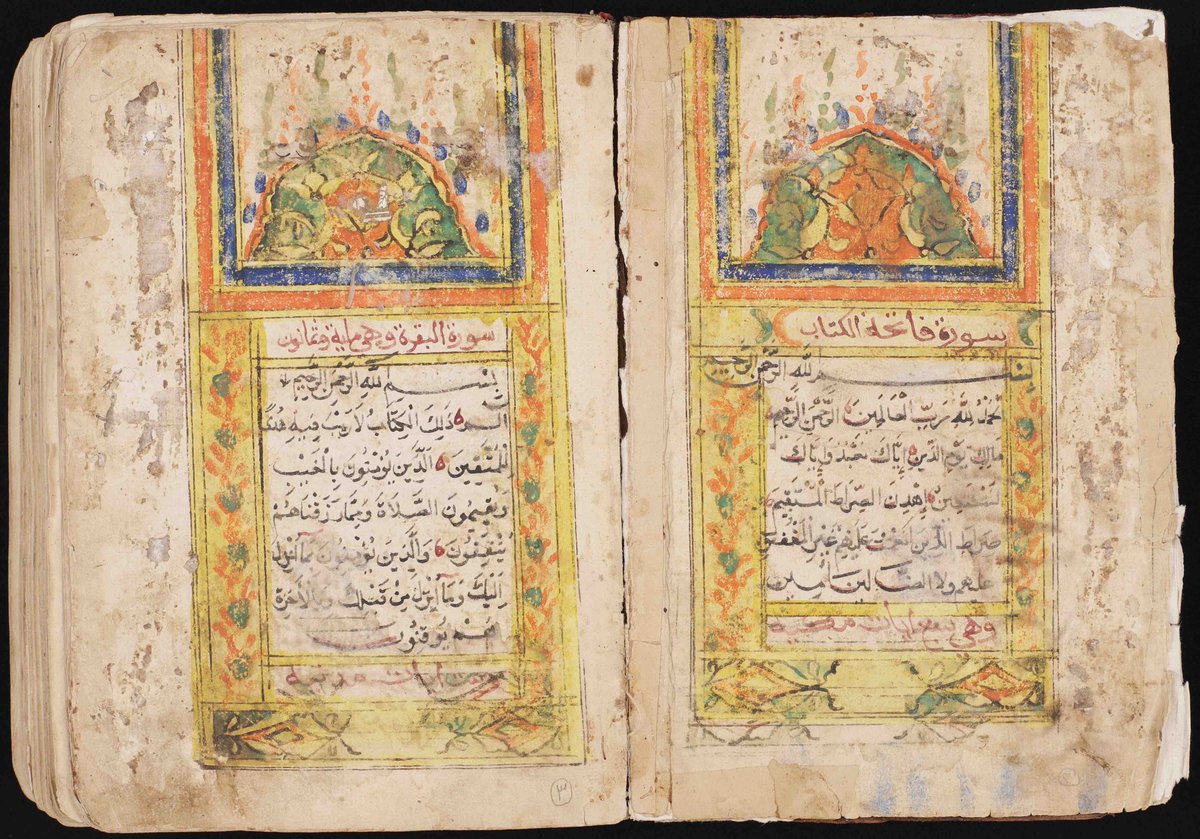 سورة فاتحة الكتاب
بِسْمِ اللهِ الرَّحْمٰنِ الرَّحِيمِ
الْحَمْدُ للهِ رَبِّ الْعَالَمِينَ الرَّحْمٰنِ الرَّحِيمِ
مَالِكِ يَوْمِ الدِّينِ إِيَّاكَ نَعْبُدُ وَإِيَّاكَ
نَسْتَعِينُ اهْدِنَا الصِّرَاطَ الْمُسْتَقِيمَ
صِرَاطَ الَّذِينَ أَنْعَمْتَ عَلَيْهِمْ غَيْرِ الْمَغْضُوبِ
عليهم ولا الضالين امين
وهي سبع ايات مكية
سورة البقرة وهي مايه وثمانون
بِسْمِ اللهِ الرَّحْمٰنِ الرَّحِيمِ
الم ذَلِكَ الْكِتَابُ لَا رَيْبَ فِيهِ هُدًى
لِلْمُتَّقِينَ الَّذِينَ يُؤْمِنُونَ بِالْغَيْبِ
وَيُقِيمُونَ الصَّلَاةَ وَمِمَّا رَزَقْنَاهُمْ
يُنْفِقُونَ وَالَّذِينَ يُؤْمِنُونَ بِمَا أُنْزِلَ
إِلَيْكَ وَمَا أُنْزِلَ مِنْ قَبْلِكَ وَبِالْآخِرَةِ
هُمْ يُوقِنُونَ
ايات مدنية
٣